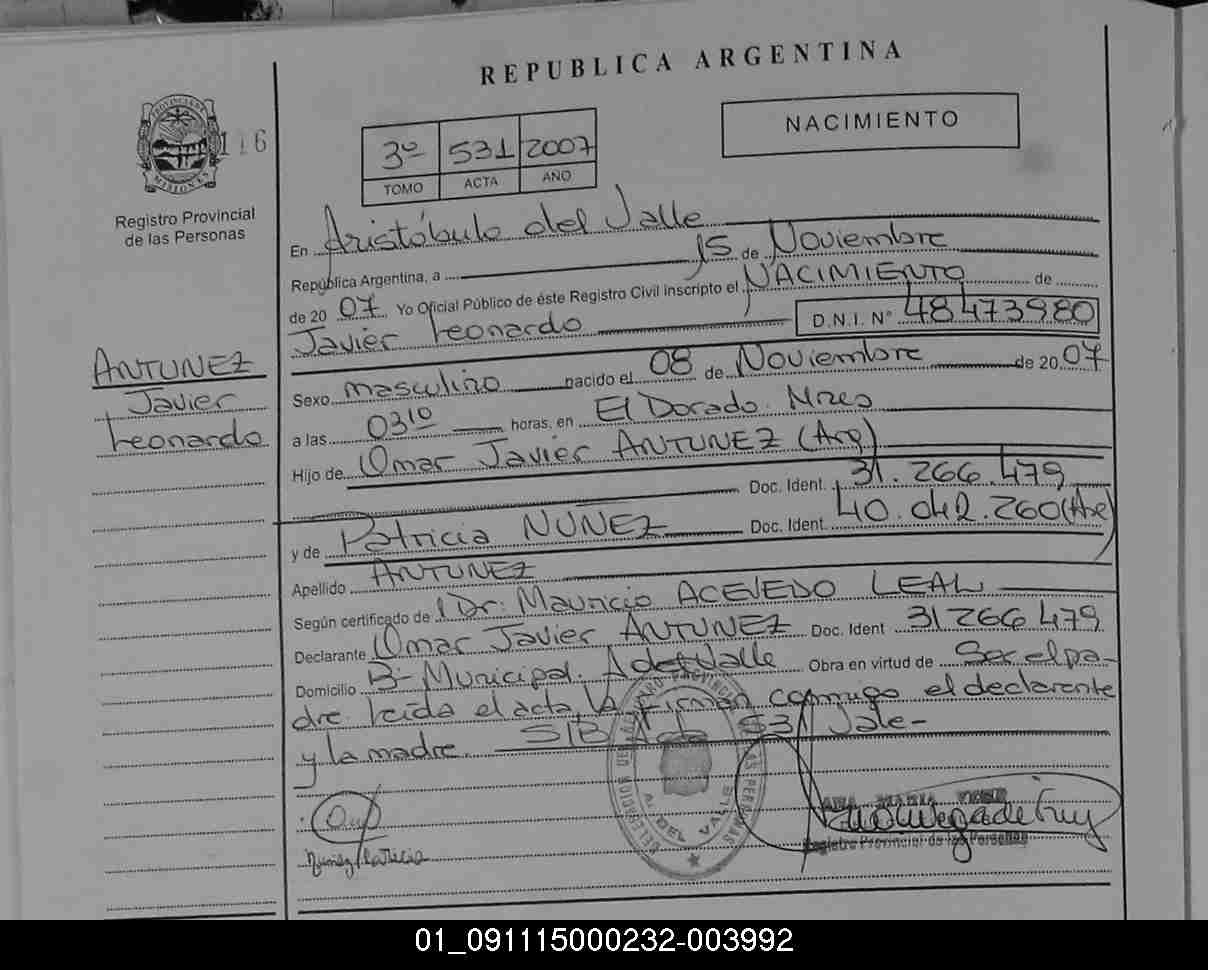 REPUBLICA ARGENTINA
PROVINCIA DE MISIONES
116
Registro Provincial
de las Personas
3º 531 2007
TOMO ACTA AÑO
NACIMIENTO
En Aristóbulo del Valle
República Argentina, a 15 de Noviembre
de 20 07 Yo Oficial Público de éste Registro Civil inscripto el NACIMIENTO de
Javier Leonardo D.N.I. Nº 48473980
ANTUNEZ
Javier
Leonardo
Sexo masculino nacido el 08 de Noviembre de 20 07
a las 03¹⁰ horas, en El Dorado. Mnes
Hijo de Omar Javier ANTUNEZ (Arg)
Doc. Ident. 31.266.479
y de Patricia NUÑEZ Doc. Ident. 40.042.260
Apellido ANTUNEZ
Según certificado de Dr. Mauricio ACEVEDO LEAL
Declarante Omar Javier ANTUNEZ Doc. Ident 31266479
Domicilio Bº Municipal. A del Valle Obra en virtud de Ser el pa-
dre. Leída el acta, la firman conmigo el declarante
y la madre. S/B 53 Vale-
DEL VALLE
ANA MARIA
Registro Provincial de las Personas
Nuñez Patricia
01_091115000232-003992